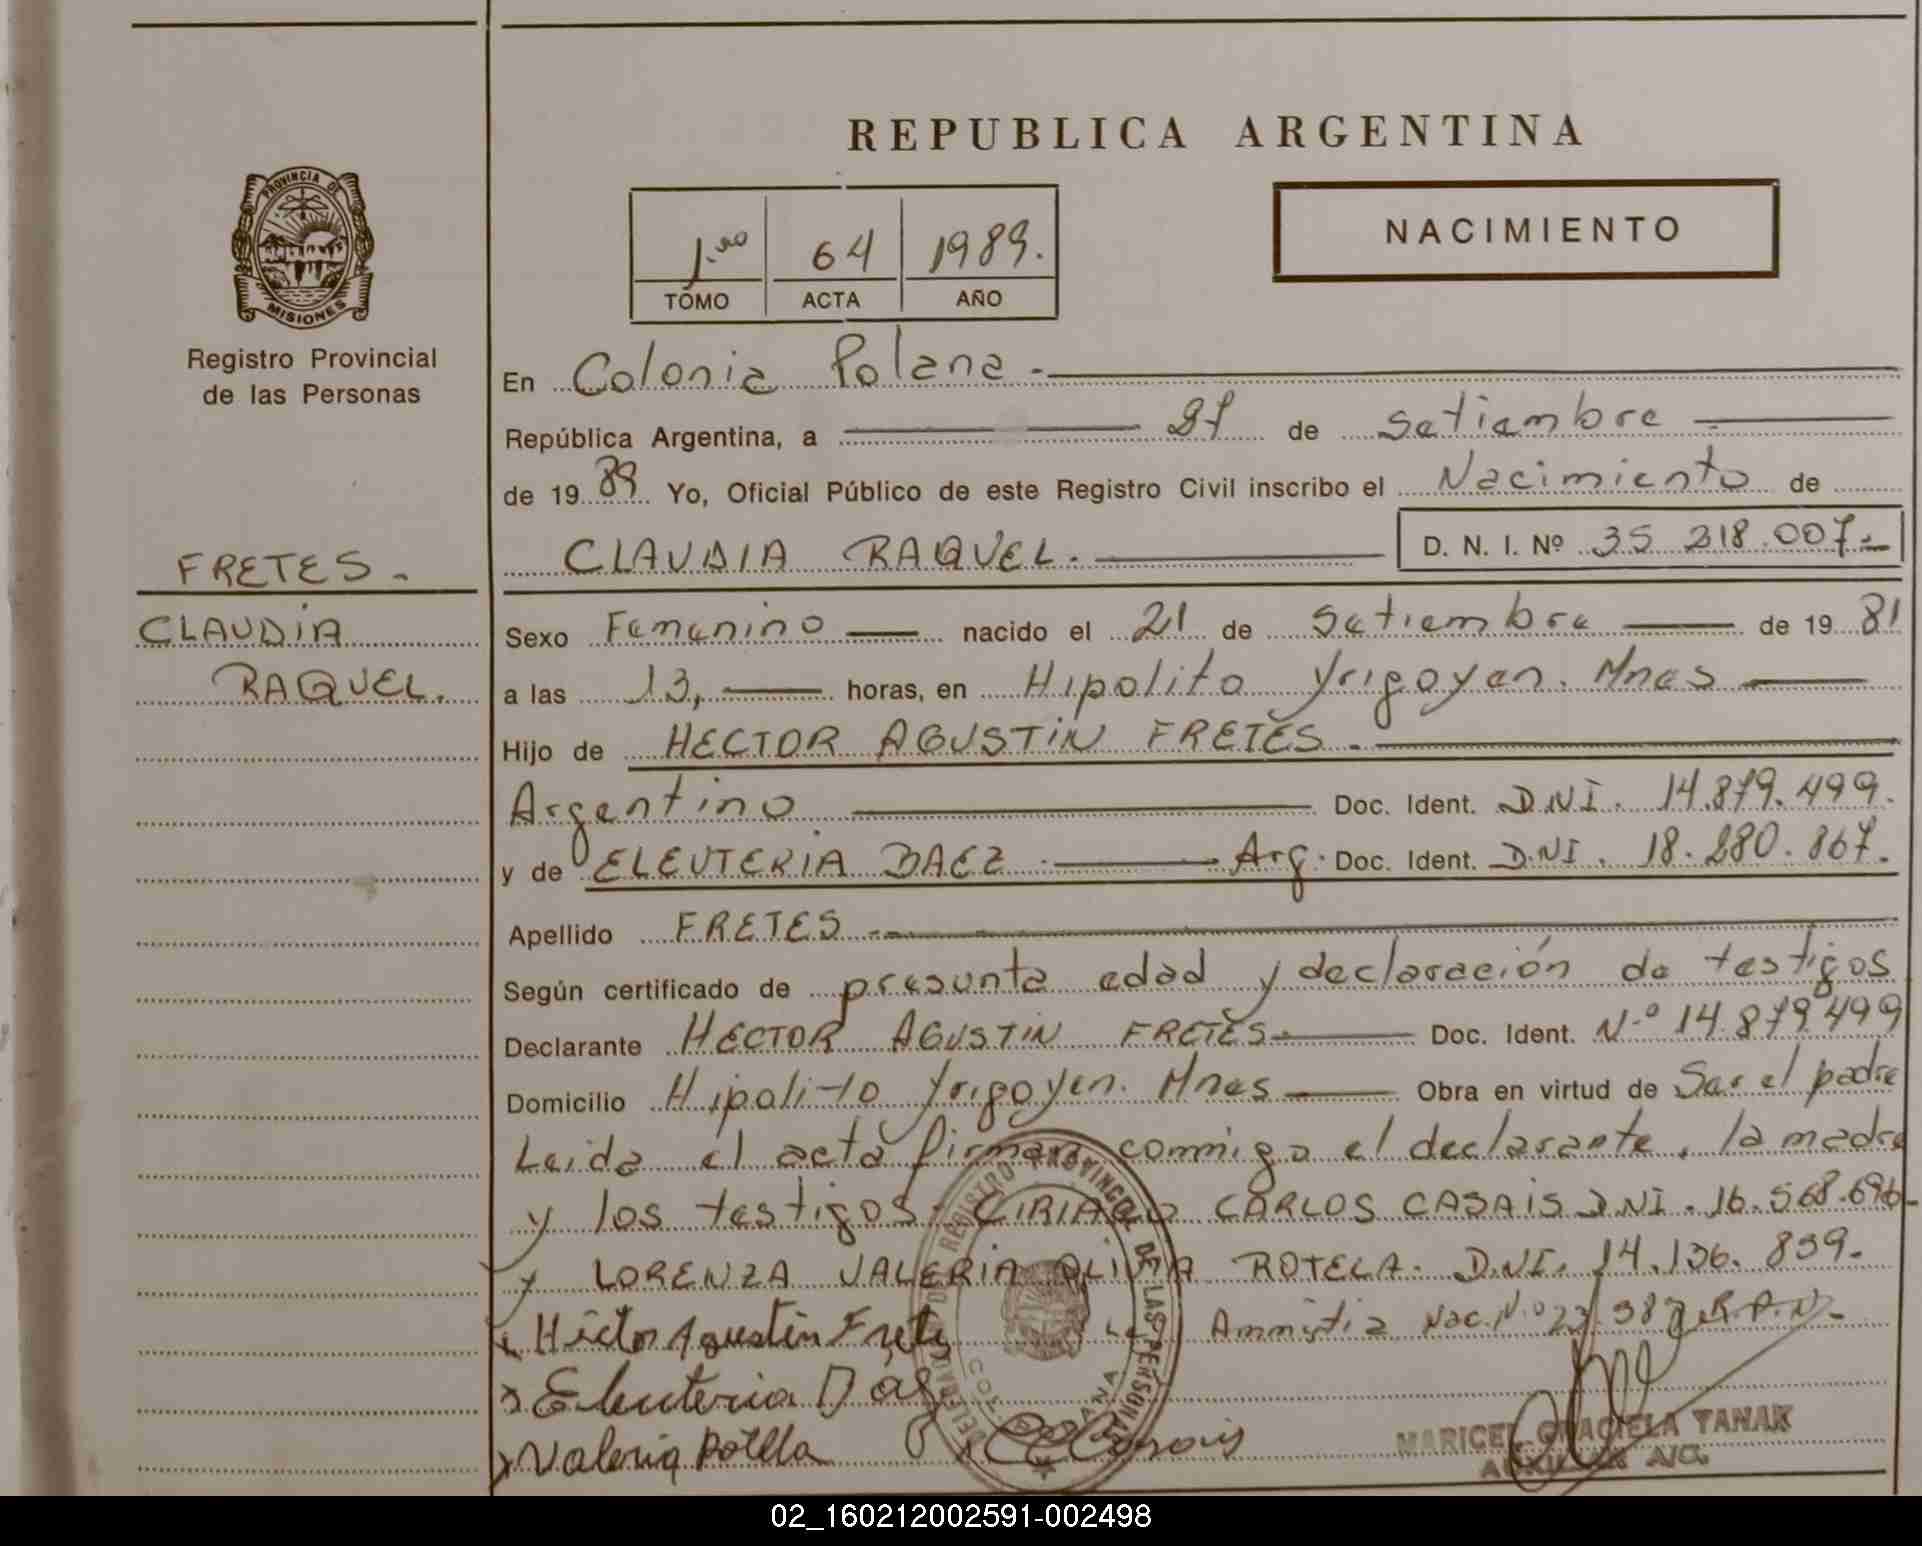 REPUBLICA ARGENTINA
PROVINCIA DE
MISIONES
Registro Provincial
de las Personas
1.ro 64 1989.
TOMO ACTA AÑO
NACIMIENTO
En Colonia Polana.
República Argentina, a 27 de Setiembre
de 1989 Yo, Oficial Público de este Registro Civil inscribo el Nacimiento de
CLAUDIA RAQUEL. D. N. I. Nº 35 218.007.-
FRETES.
CLAUDIA
RAQUEL.
Sexo Femenino nacido el 21 de Setiembre de 1981
a las 13, horas, en Hipolito Yrigoyen. Mnes
Hijo de HECTOR AGUSTIN FRETES.
Argentino Doc. Ident. D.N.I. 14.879.499.
y de ELEUTERIA BAEZ. Arg. Doc. Ident. D.N.I. 18.280.867.
Apellido FRETES.
Según certificado de presunta edad y declaración de testigos
Declarante HECTOR AGUSTIN FRETES.- Doc. Ident. N.º 14.879499
Domicilio Hipolito Yrigoyen. Mnes Obra en virtud de Ser el padre
Leida el acta firman conmigo el declarante, la madre
y los testigos. CIRIACO CARLOS CASAIS D.N.I. 16.568.696-
y LORENZA VALERIA OLIVA ROTELA. D.N.I. 14.136.859.
Hector Agustin Frete Ley Amnistia Nac. N.º 23 R.P.N.-
Eleuteria Baez
Valeria Rotella
DELEGACION REGISTRO PROVINCIAL DE LAS PERSONAS
MARICEL GRACIELA TANAK
02_160212002591-002498